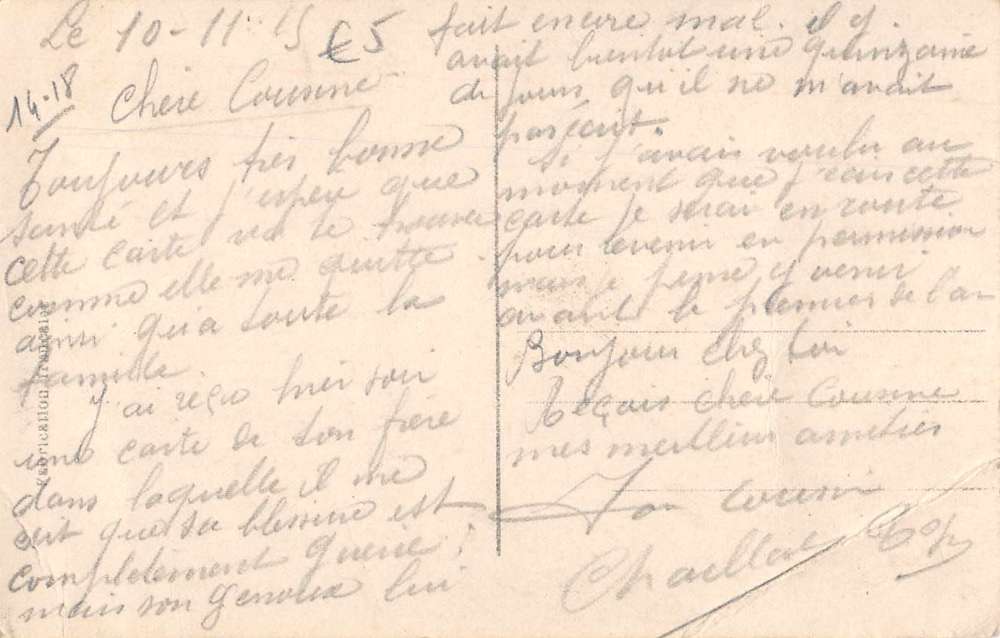 Le 10-11-15
€5
14-18
Chère Cousine
Toujours très bonne
santé et j'espère que
cette carte va te trouver
comme elle me quitte
ainsi qu'a toute la
famille.
J'ai reçu hier soir
une carte de ton frère
dans laquelle il me
dit que sa blessure est
complètement guérie !
mais son genoux lui
fait encore mal. il y
avait bientot une quinzaine
de jours qu'il ne m'avait
pas écrit.
Si j'avais voulu au
moment que j'ecris cette
carte je serai en route
pour venir en permission
mais je pense y venir
avant le premier de l'an
Bonjour chez toi
Reçois chère Cousine
mes meilleur amitiés
Ton cousin
Chaillot
Fabrication française